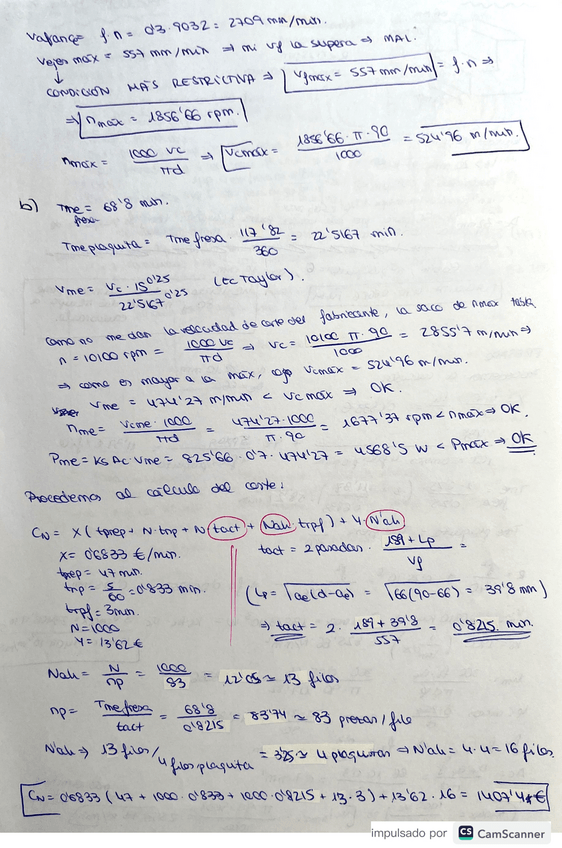 Vavance = f·n = 0'3·9032 = 2709 mm/min.
Vejes máx = 557 mm/min ⇒ mi vf la supera ⇒ MAL.
CONDICIÓN MÁS RESTRICTIVA ⇒ Vfmax = 557 mm/min = f·n ⇒
⇒ nmax = 1856'66 rpm.
nmáx = 1000 Vc / πd ⇒ Vcmáx = 1856'66·π·90 / 1000 = 524'96 m/min.
b) Tme fresa = 68'8 min.
Tmeplaquita = Tmefresa · 117'82 / 360 = 22'5167 min.
Vme = Vc·15^0'25 / 22'5167^0'25 (Ec Taylor).
como no me dan la velocidad de corte del fabricante, la saco de nmax
n = 10100 rpm = 1000 Vc / πd ⇒ Vc = 10100·π·90 / 1000 = 2855'7 m/min ⇒
⇒ como es mayor a la máx, cojo Vcmáx = 524'96 m/min.
Vme = 474'27 m/min < Vc máx ⇒ OK.
nme = Vcme·1000 / πd = 474'27·1000 / π·90 = 1677'37 rpm < nmáx ⇒ OK.
Pme = Ks·Ac·Vme = 825'66·0'7·474'27 = 4568'5 W < Pmáx ⇒ OK
Procedemos al cálculo del coste:
CN = X(tprep + N·tnp + N·tact + Nafi·trpf) + Y·N'afi
X = 0'6833 €/min.
tprep = 47 min
tnp = 5/60 = 0'833 min.
trpf = 3 min.
N = 1000
Y = 13'62 €
tact = 2 pasadas · 189 + Lp / Vf =
(Lp = √ae(d-ae) = √66(90-66) = 39'8 mm)
⇒ tact = 2 · 189 + 39'8 / 557 = 0'8215 min.
Nafi = N / np = 1000 / 83 = 12'05 ≃ 13 filos
np = Tmefresa / tact = 68'8 / 0'8215 = 83'74 ≃ 83 piezas/filo
N'afi ⇒ 13 filos / 4 filos plaquita = 3'25 ≃ 4 plaquitas ⇒ N'afi = 4·4 = 16 filos.
CN = 0'6833 (47 + 1000·0'833 + 1000·0'8215 + 13·3) + 13'62·16 = 1407'4 €
impulsado por CS CamScanner